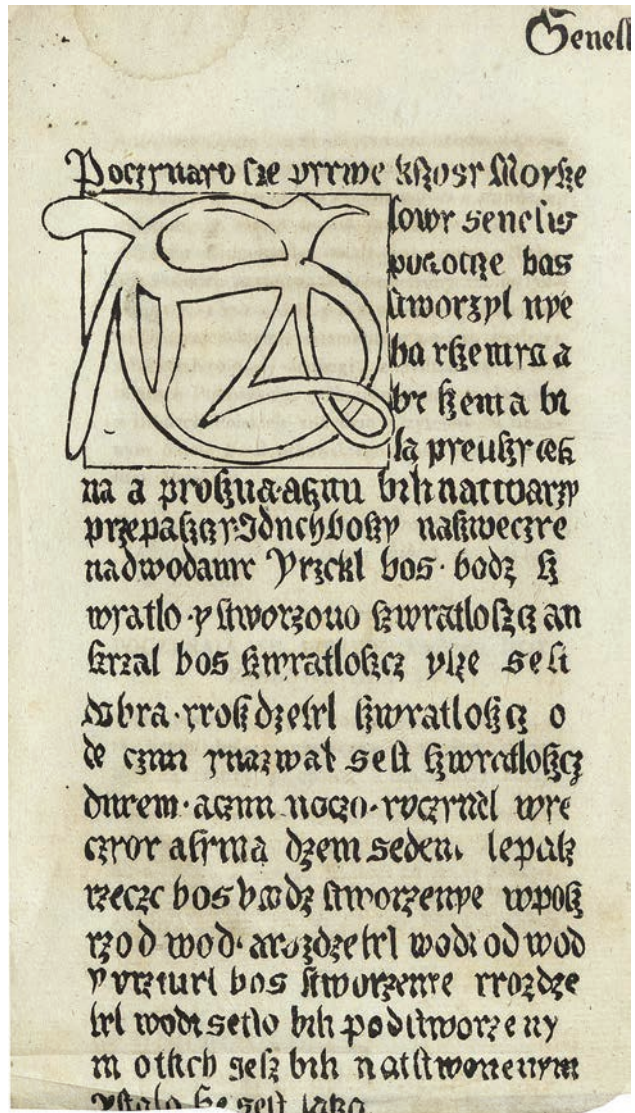 Genesis
Poczynaio sze pyrwe kszygy Moysze
sowy genesis
poczotcze bog
stworzyl nye
ba yszemya a
by szema bi
la
na a proszna aczmi bihnattwarzy
przepaszczy
nadwodami Yrzekl bog bodz sz
wyatlo y stworzono szwyatloszcz an
szrzal bog szwyatloszcz ysze gest
dobra yroszdzelyl szwyatloszcz o
de czmi ynazwal gest szwyatloszcz
dnyem aczmi noczo yuczynil wye
czyor a dzem geden lepak
rzecze bog bodz stworzenye wposz
rzod wod arozdzelyl wodi od wod
y bog stworzenye yrozdze
lyl wodi
m otich gesz bih natstworzenym
ystalo sze gest tako